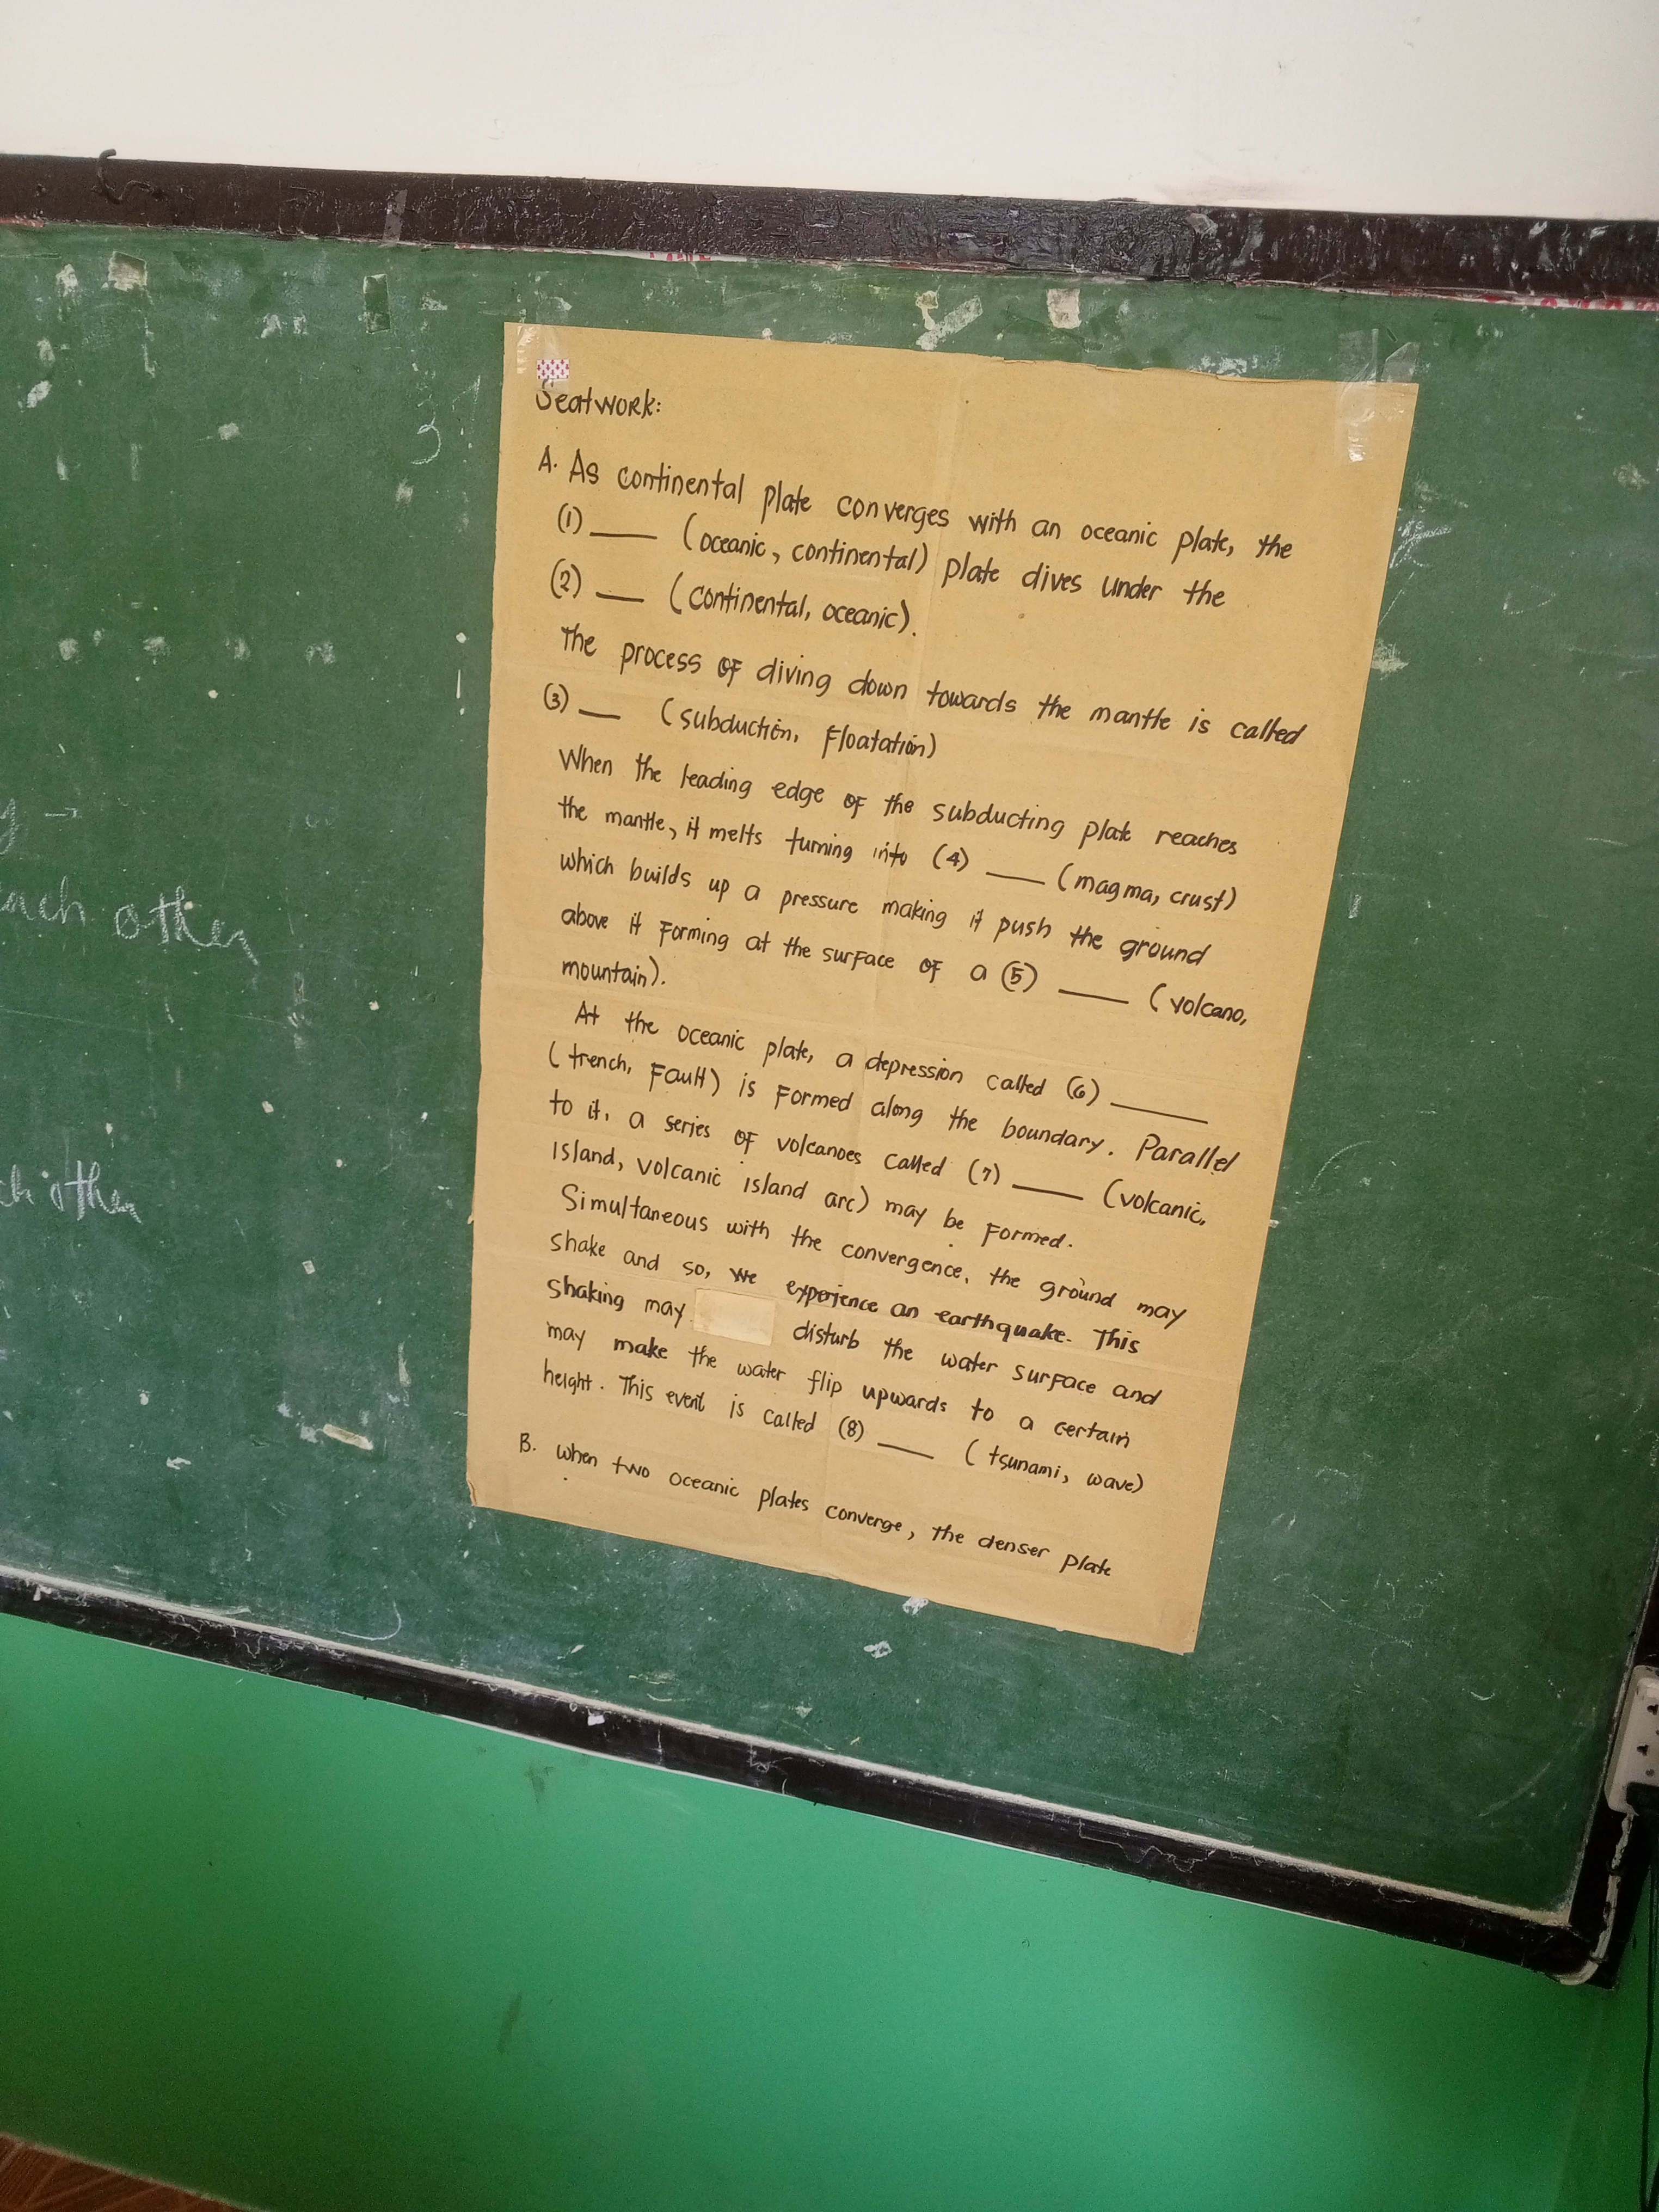 Seatwork:
A. As continental plate converges with an oceanic plate, the
(1) ___ (oceanic, continental) plate dives under the
(2) ___ (continental, oceanic).
The process of diving down towards the mantle is called
(3) ___ (subduction, floatation)
When the leading edge of the subducting plate reaches
the mantle, it melts turning into (4) ___ (magma, crust)
which builds up a pressure making it push the ground
above it forming at the surface of a (5) ___ (volcano,
mountain).
At the oceanic plate, a depression called (6) ___
(trench, fault) is formed along the boundary. Parallel
to it, a series of volcanoes called (7) ___ (volcanic,
island, volcanic island arc) may be formed.
Simultaneous with the convergence, the ground may
shake and so, we experience an earthquake. This
shaking may disturb the water surface and
may make the water flip upwards to a certain
height. This event is called (8) ___ (tsunami, wave)
B. When two oceanic plates converge, the denser plate
each other
other